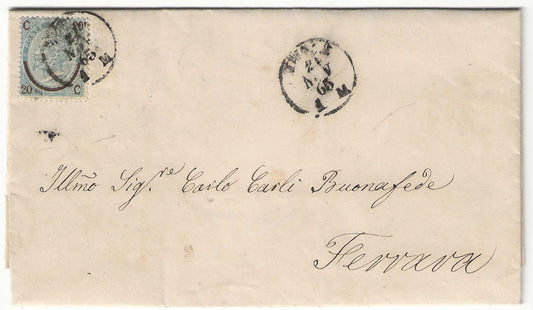 C 20
20 C
24
65
1 M
Illmo Sigr. re Carlo Carli Buonafede
Ferrara